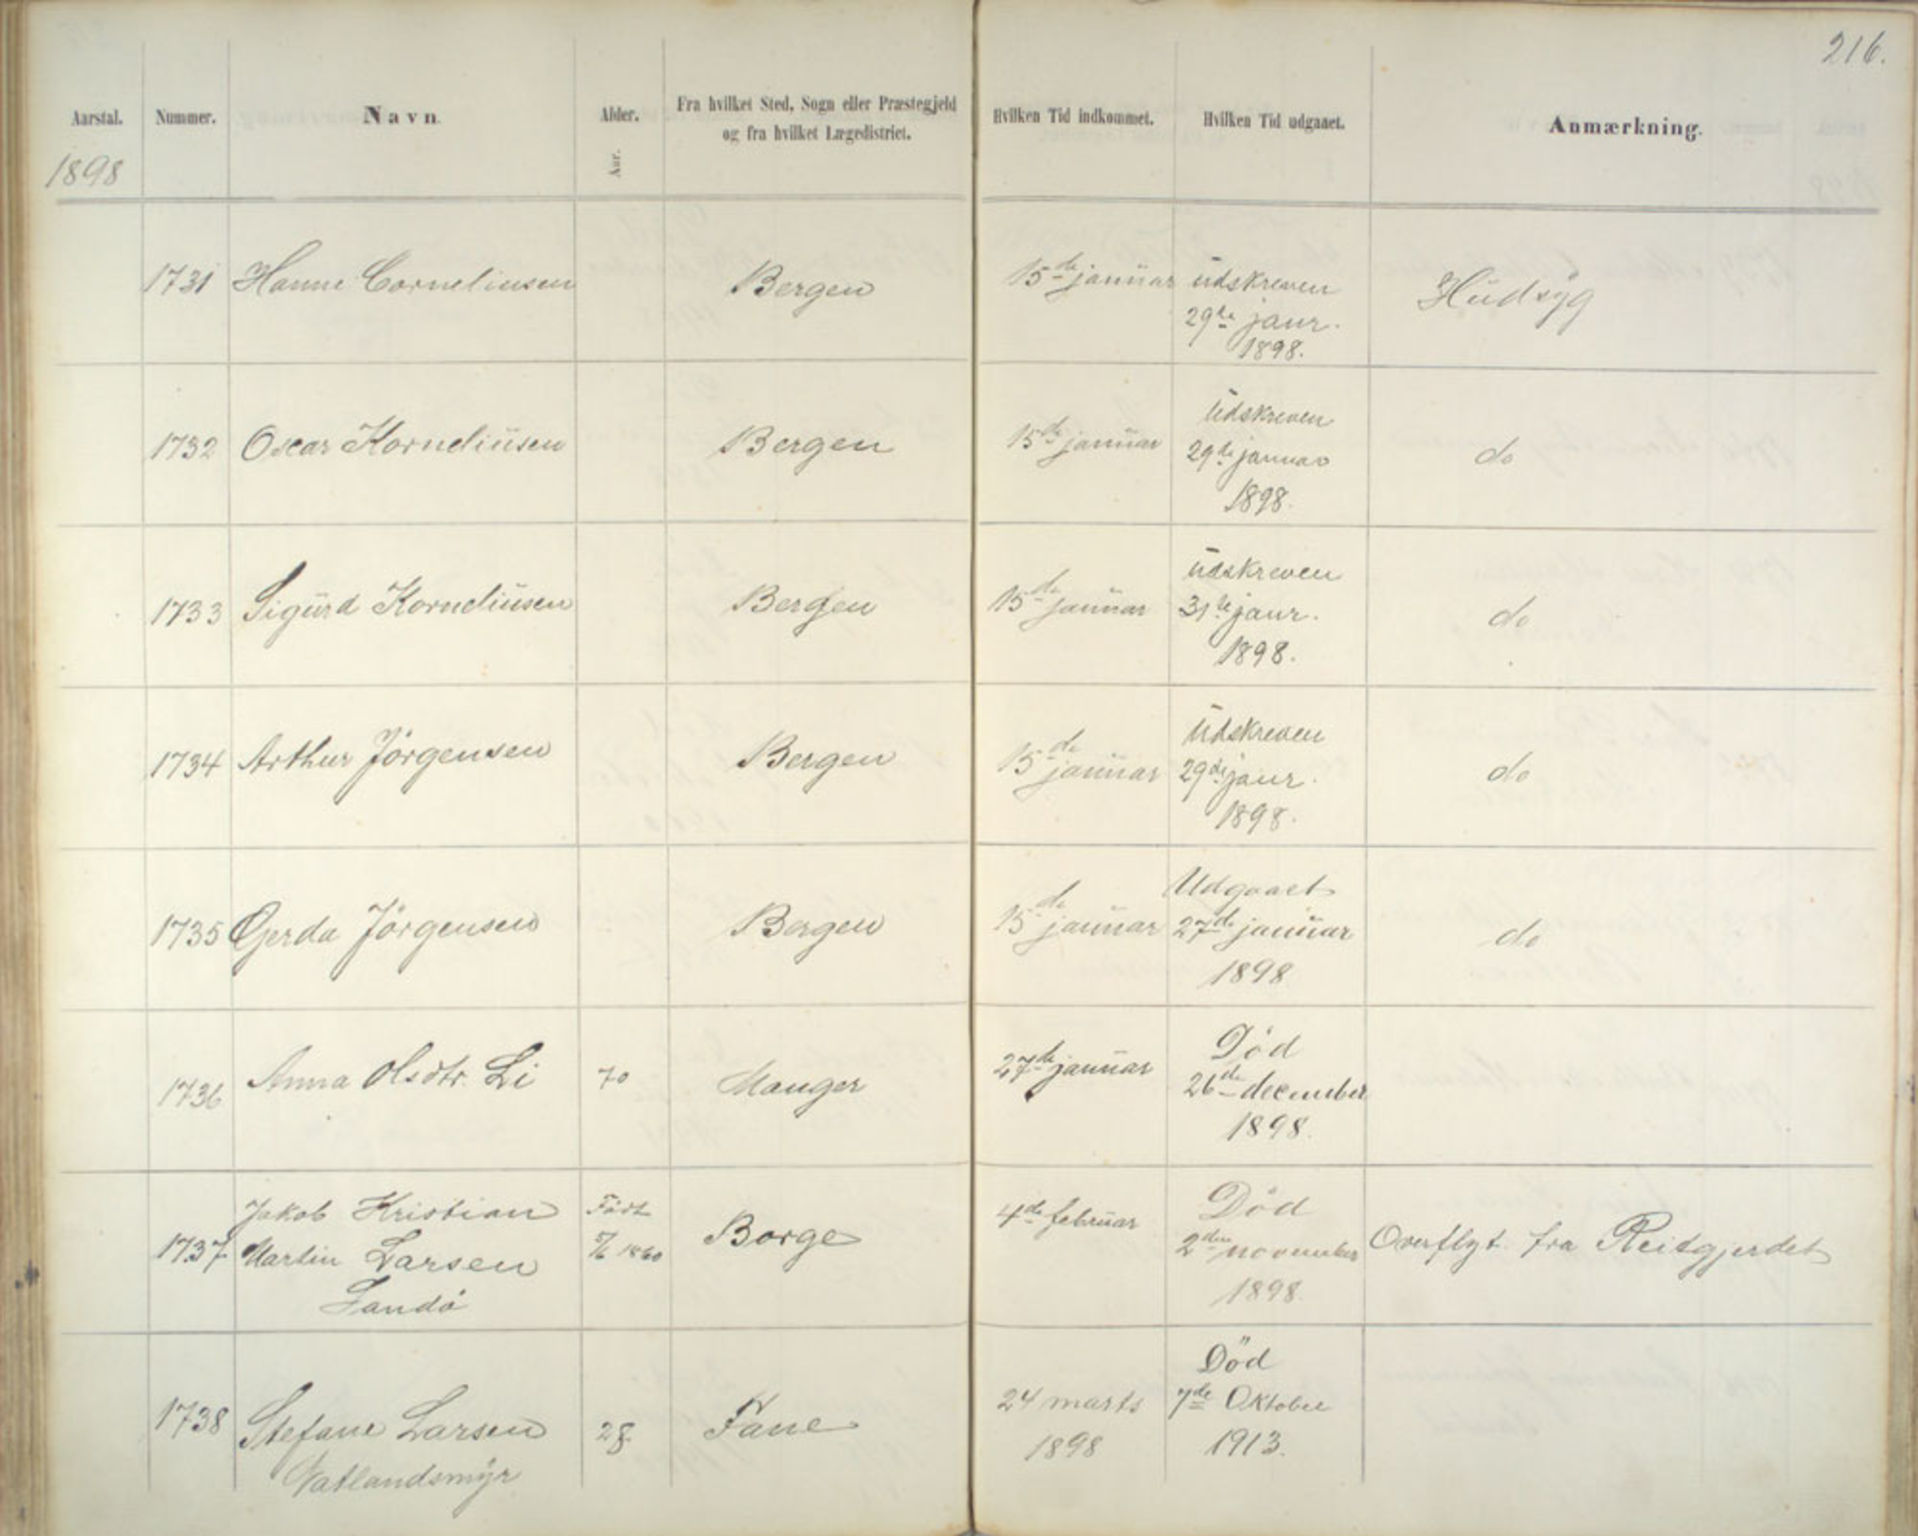 216.
Aarstal. Nummer. Navn. Alder. Fra hvilket Sted, Sogn eller Præstegjeld Hvilken Tid indkommet. Hvilken Tid udgaaet. Anmærkning.
Aar. og fra hvilket Lægedistriet.
1898
1731 Hanne Corneliusen Bergen 15de januar udskreven Hudsyg
29de janr.
1898.
1732 Oscar Korneliusen Bergen 15de januar Udskreven do
29de januar
1898.
1733 Sigurd Korneliusen Bergen 15de januar udskreven do
31te janr.
1898.
1734 Arthur Jörgensen Bergen 15de januar Udskreven do
29de janr.
1898.
1735 Gerda Jörgensen Bergen 15de januar Udgaaet do
27de januar
1898
1736 Anna Olsdtr. Li 70 Manger 27de januar Död
26de december
1898.
1737 Jakob Kristian Födt Borge 4de februar Död Overflyt. fra Reitgjerdet
Martin Larsen 1860 2den november
Sandö 1898.
1738 Stefane Larsen 28 Fane 24 marts Död
Natlandsmyr 1898 7de Oktober
1913.